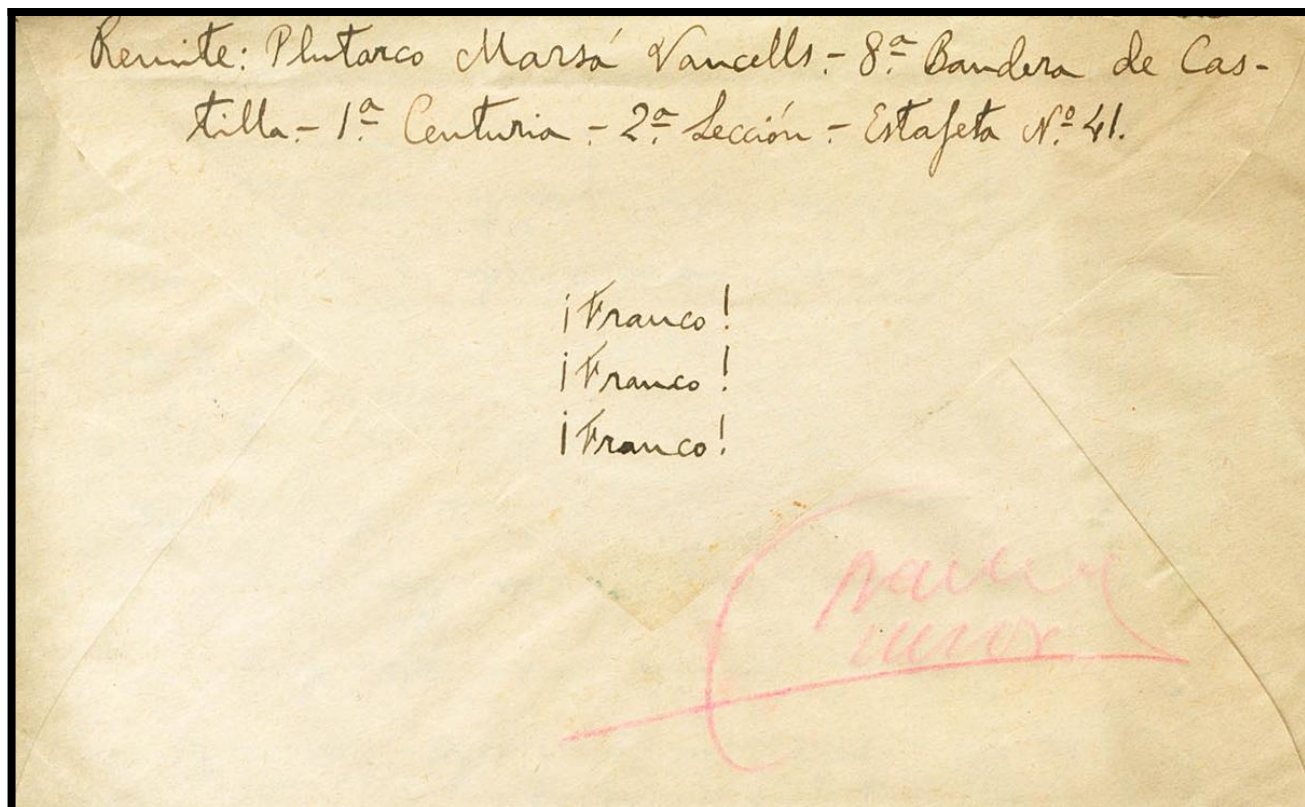 Remite: Plutarco Marsá Vancells.- 8.ª Bandera de Cas-
tilla.- 1.ª Centuria.- 2.ª Sección.- Estafeta N.º 41.
¡Franco!
¡Franco!
¡Franco!